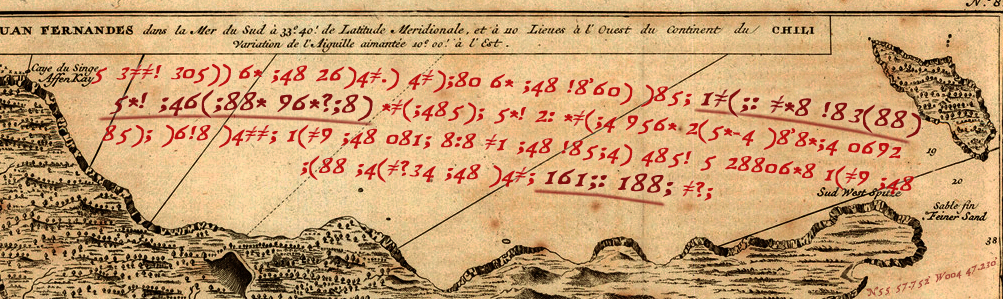 N.º 8
UAN FERNANDES dans la Mer du Sud à 33º 40! de Latitude Meridionale, et à 110 Lieues à l'Ouest du Continent du CHILI
Variation de l'Aiguille aimantée 10º 00! à l'Est.
Caye du Singe
Affen Kay
5 3≠≠! 305)) 6* ;48 26)4≠.) 4≠);80 6* ;48 !8'60) )85; 1≠(;: ≠*8 !83(88)
5*! ;46(;88* 96*?;8) *≠(;485); 5*! 2: *≠(;4 956* 2(5*-4 )8'8*;4 0692
85); )6!8 )4≠≠; 1(≠9 ;48 081; 8:8 ≠1 ;48 !85;4) 485! 5 28806*8 1(≠9 ;48
;(88 ;4(≠?34 ;48 )4≠; 161;: 188; ≠?;
19
20
Sud West Spitze
Sable fin
Feiner Sand
38
N55 57.752 W004 47.230